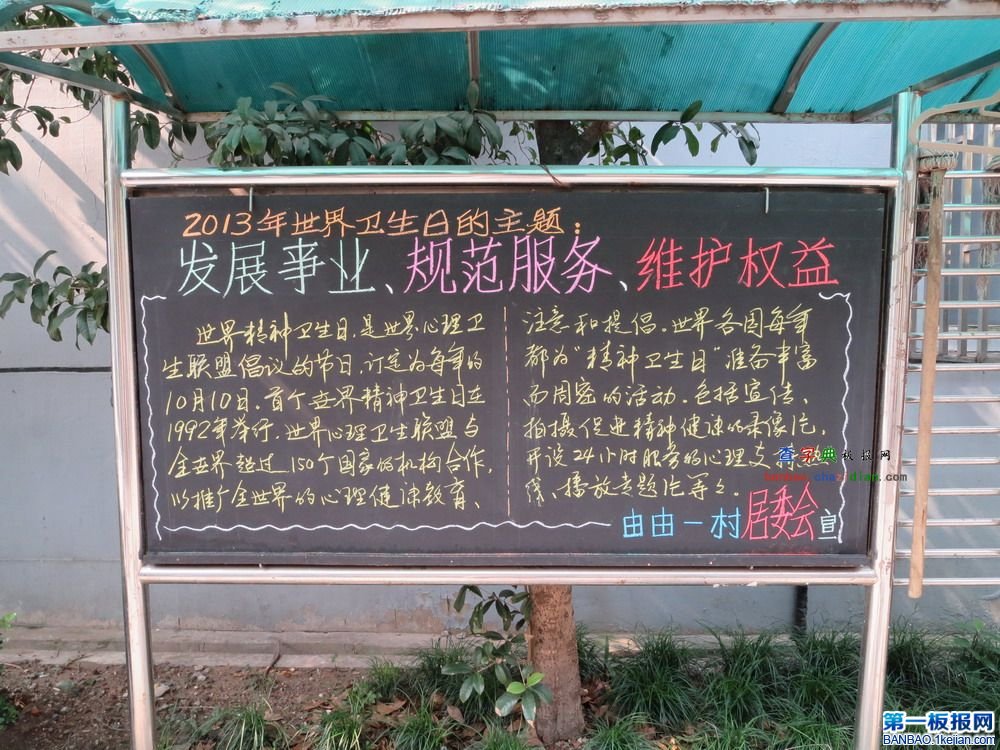 2013年世界卫生日的主题：
发展事业、规范服务、维护权益
世界精神卫生日，是世界心理卫
生联盟倡议的节日，订定为每年的
10月10日。首个世界精神卫生日在
1992年举行。世界心理卫生联盟与
全世界超过150个国家的机构合作，
以推广全世界的心理健康教育、
注意和提倡。世界各国每年
都为“精神卫生日”准备丰富
而周密的活动。包括宣传，
拍摄促进精神健康的录像片，
开设24小时服务的心理支持热
线、播放专题片等等。
由由一村居委会宣
查字典板报网
banbao.chazidian.com
第一板报网
BANBAO.1kejian.com